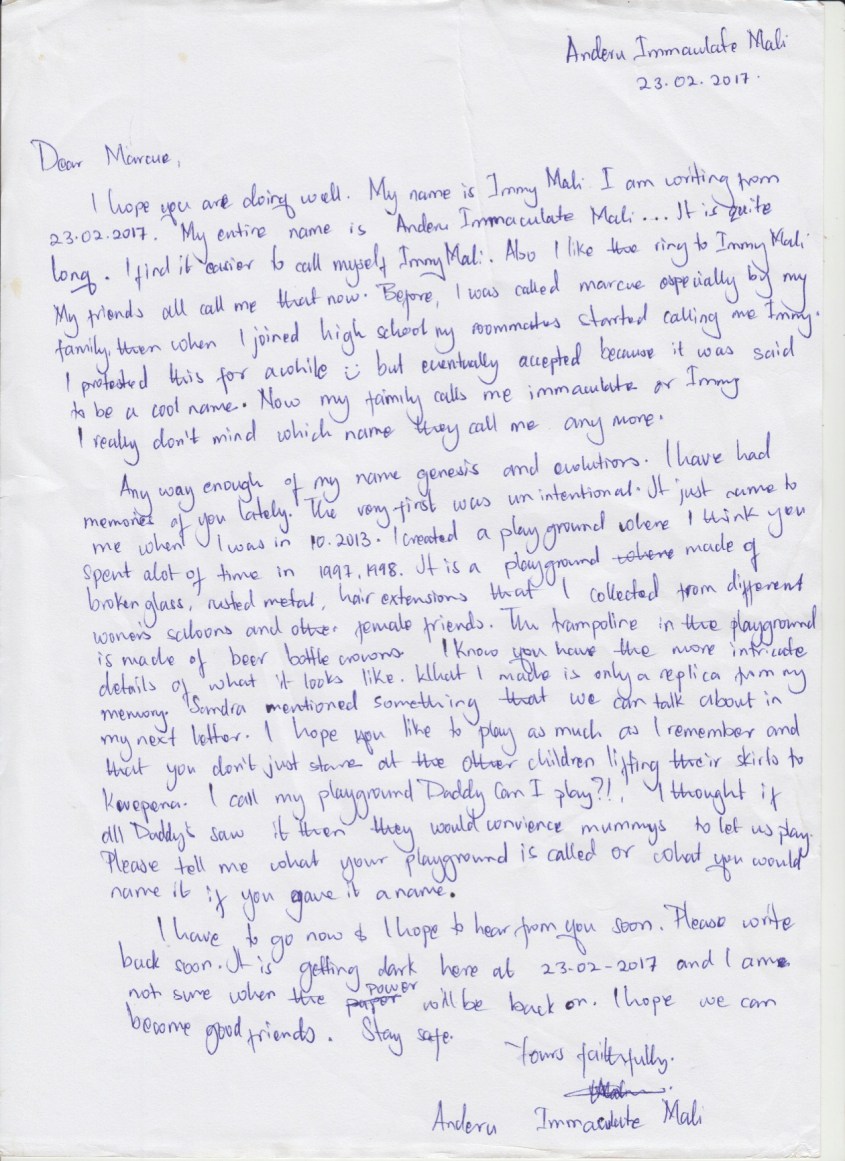 Anderu Immaculate Mali
23.02.2017.
Dear Marcue,
I hope you are doing well. My name is Immy Mali I am writing from
23.02.2017. My entire name is Anderu Immaculate Mali... It is quite
long. I find it easier to call myself Immy Mali. Also I like the ring to Immy Mali
My friends all call me that now. Before, I was called marcue especially by my
family, then when I joined high school my roommates started calling me Immy.
I protested this for awhile but eventually accepted because it was said
to be a cool name. Now my family calls me immaculate or Immy
I really don't mind which name they call me any more.
Any way enough of my name genesis and evolutions. I have had
memories of you lately. The very first was unintentional. It just came to
me when I was in 10.2013. I created a playground where I think you
spent alot of time in 1997, 1998. It is a playground where made of
broken glass, rusted metal, hair extensions that I collected from different
women's saloons and other female friends. The trampoline in the playground
is made of beer bottle crowns. I know you have the more intricate
details of what it looks like. What I made is only a replica from my
memory. Sandra mentioned something that we can talk about in
my next letter. I hope you like to play as much as I remember and
that you don't just stare at the other children lifting their skirts to
Kwepena. I call my playground Daddy Can I play?!, I thought if
all Daddy's saw it then they would convience mummys to let us play.
Please tell me what your playground is called or what you would
name it if you gave it a name.
I have to go now & I hope to hear from you soon. Please write
back soon. It is getting dark here at 23-02-2017 and I am
not sure when the paper power will be back on. I hope we can
become good friends. Stay safe.
Yours faithfully.
Anderu Immaculate Mali